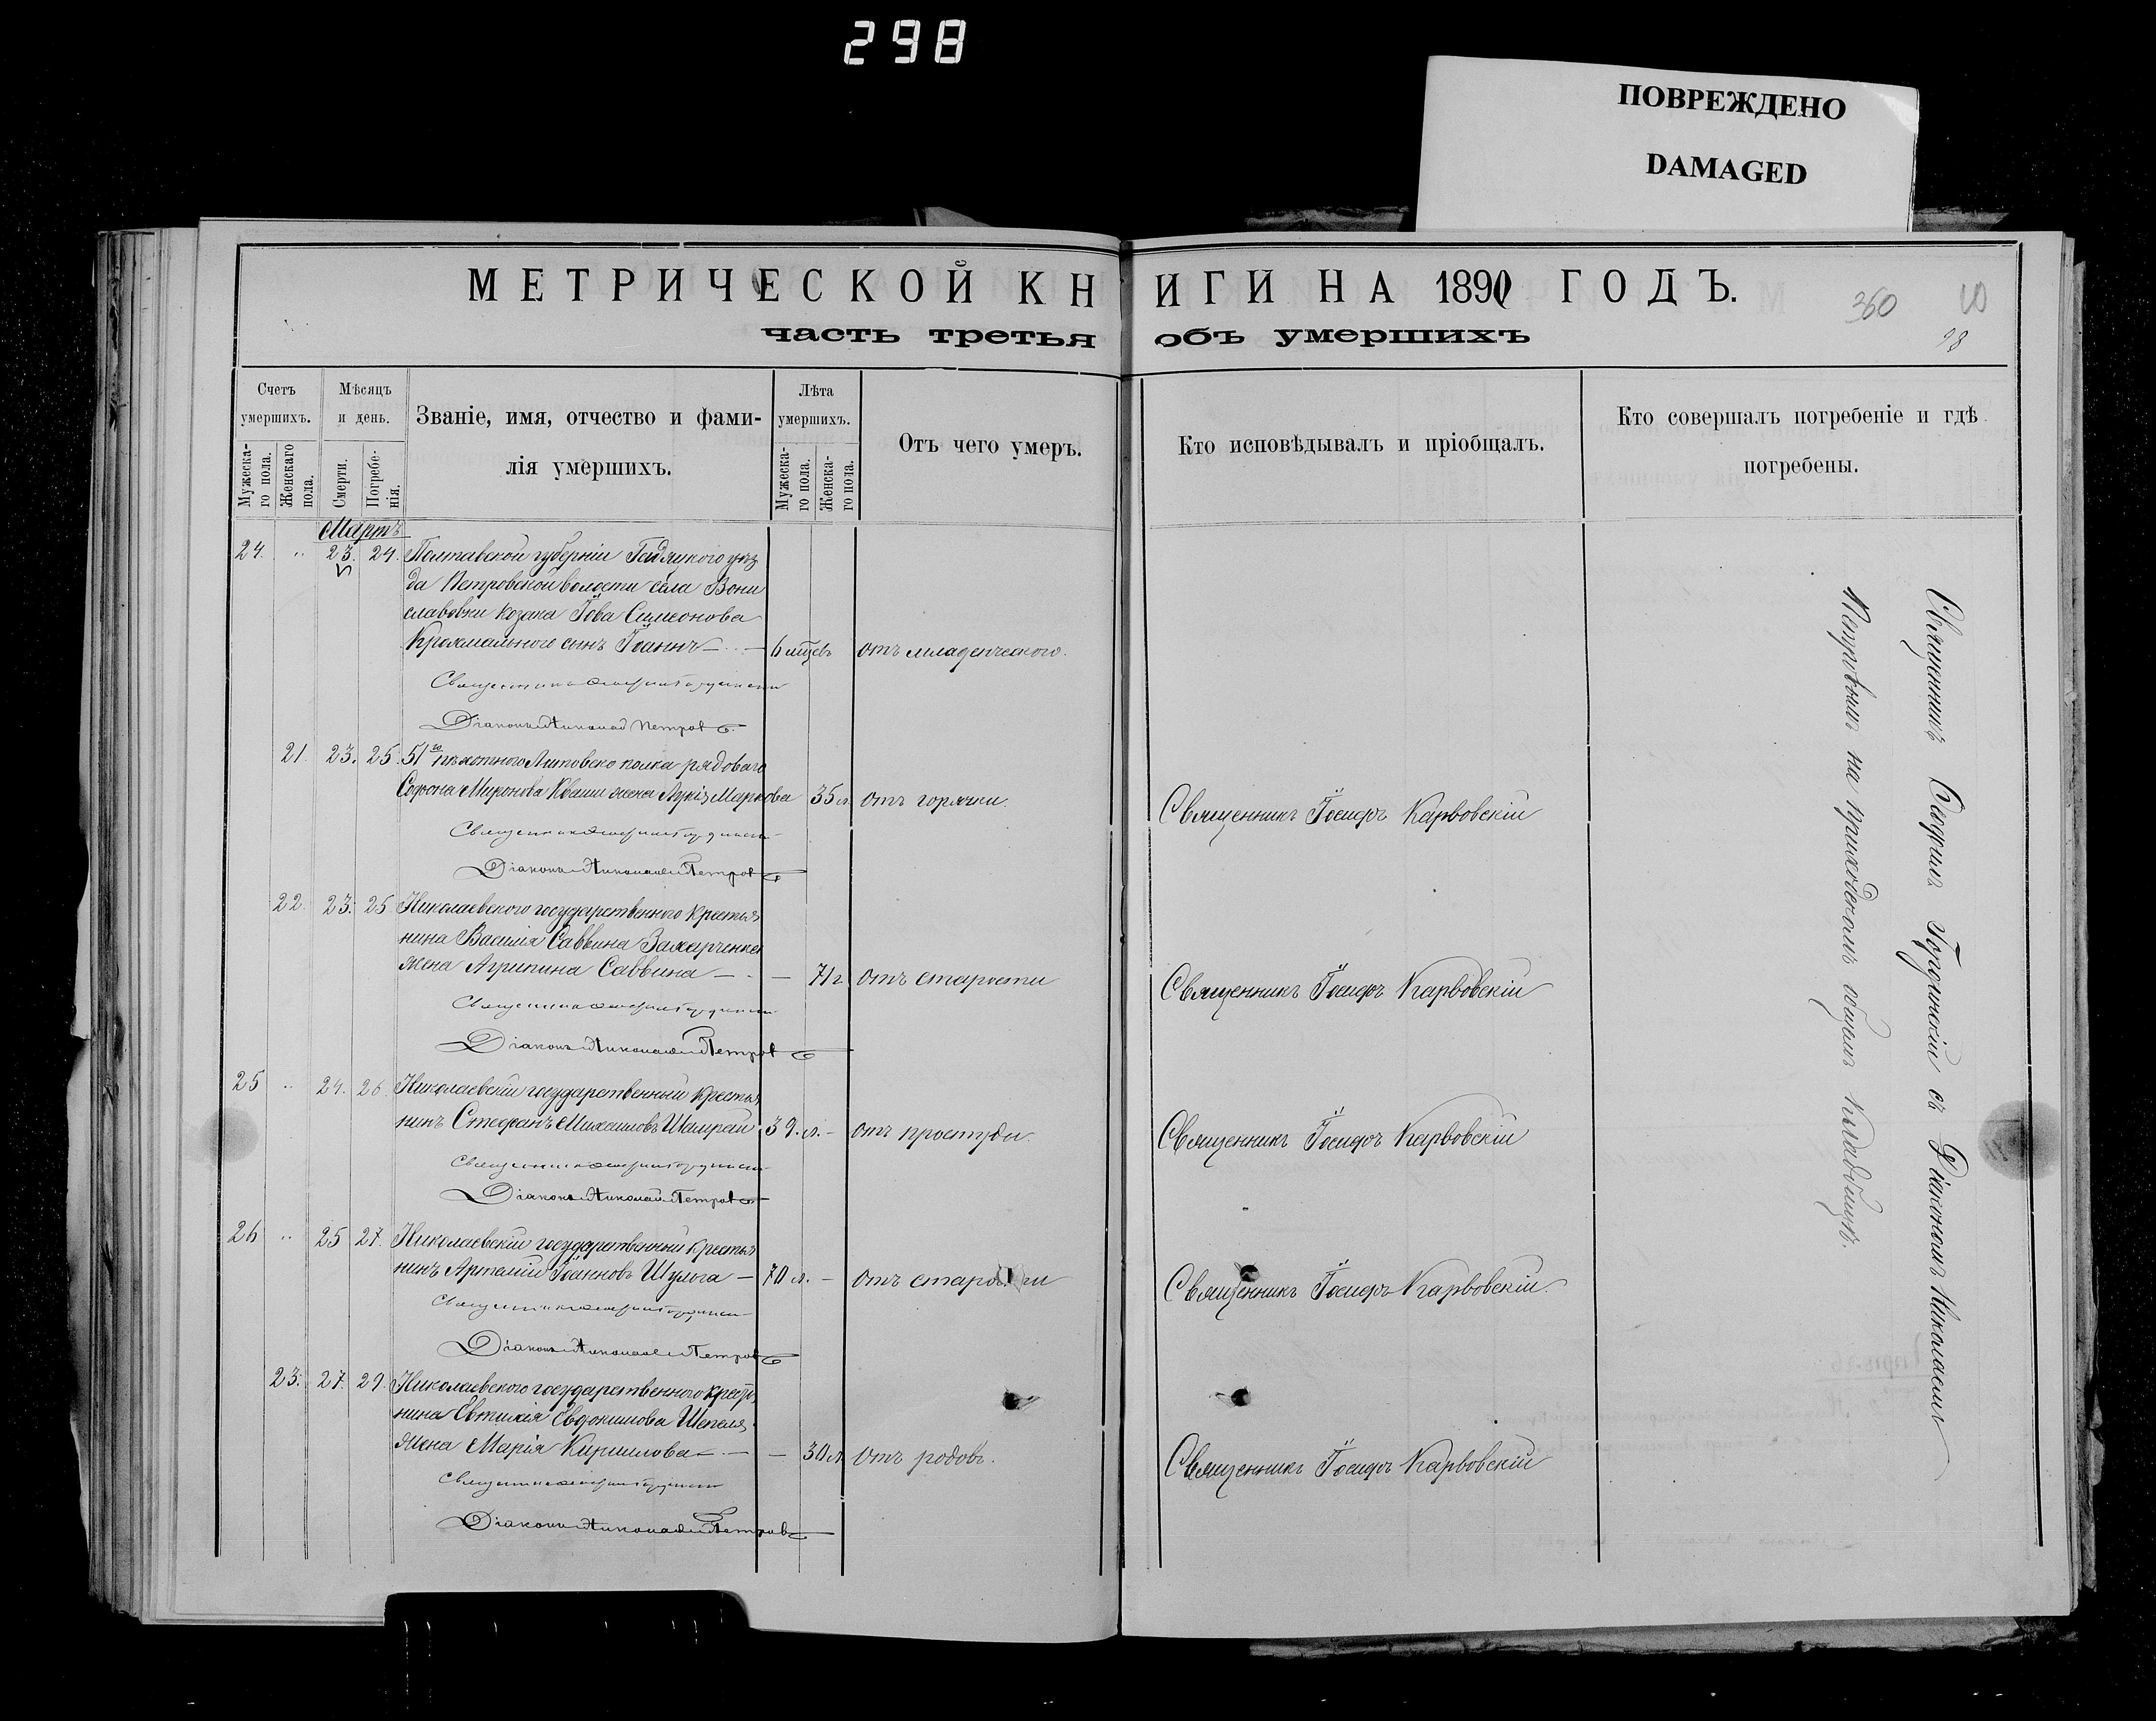 298
ПОВРЕЖДЕНО
DAMAGED
МЕТРИЧЕСКОЙ КНИГИ НА 1890 ГОДЪ.
360
часть третья объ умершихъ
Счетъ умершихъ.
Мѣсяцъ и день.
Званіе, имя, отчество и фами-
лія умершихъ.
Лѣта умершихъ.
Отъ чего умеръ.
Кто исповѣдывалъ и пріобщалъ.
Кто совершалъ погребеніе и гдѣ
погребены.
Мужеска-го пола.
Женскаго пола.
Смерти.
Погребе-нія.
Мужеска-го пола.
Женска-го пола.
Мартъ
24. " 23. 24. Полтавской губерніи Гадяцкого уѣз
да Петровской волости села
козака Іова Симеонова
сынъ Іоаннъ — 6 мцевъ отъ младенческого.
Діаконъ Николай Петровъ
21. 23. 25. 51го пѣхотного полка рядоваго
Миронова жена Маркова 35 л. отъ горячки. Священникъ Іосифъ Карвовскій
Діаконъ Николай Петровъ
22. 23. 25 Николаевского государственного крестья
нина Василія Саввина Захарченка
жена Агрипина Саввина — — 71 г. отъ старости Священникъ Іосифъ Карвовскій
Діаконъ Николай Петровъ
25 " 24. 26. Николаевскій государственный крестья
нинъ Стефанъ Михаиловъ Шамрай 39. л. — отъ простуды. Священникъ Іосифъ Карвовскій
Діаконъ Николай Петровъ
26 " 25 27. Николаевскій государственный крестья
нинъ Артемій Іоанновъ Шульга — 70 л. — отъ старости Священникъ Іосифъ Карвовскій.
Діаконъ Николай Петровъ
23. 27. 29. Николаевского государственного крестья
нина Евтихія Евдокимова Шепеля
жена Марія Кириллова — — 30 л. отъ родовъ. Священникъ Іосифъ Карвовскій
Діаконъ Николай Петровъ
Священникъ Городинскій съ Діакономъ Николаемъ
Петровымъ на приходскомъ общемъ кладбищѣ.